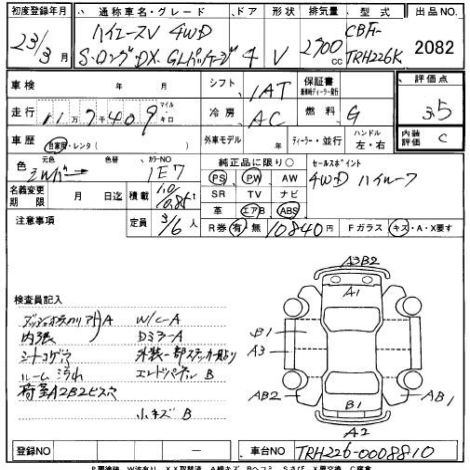 初度登録年月 通称車名・グレード ドア 形状 排気量 型式 出品NO.
23/3月 ハイエースV 4WD CBF-
S・ロング・DX・GLパッケージ 4 V 2700cc TRH226K 2082
車検 年 月 シフト IAT 保証書 評価点
走行 11万7409 マイル キロ 冷房 AC 燃料 G 3.5
車歴 自家用・レンタ( ) 外車モデル 年 ディーラー・並行 ハンドル 左・右 内装評価 C
色 元色 シルバー 色替 カラーNO 1E7 純正品に限り○ セールスポイント
PS PW AW 4WD ハイルーフ
名義変更期限 月 日迄 積載 1.0/0.85t SR TV ナビ
定員 3/6人 革 エアB ABS
注意事項 R券 有・無 10840円 Fガラス キズ・A・X要す
検査員記入
A W/C-A
内張 DミラーA
シートコゲ穴 外装一部ステッカー貼り
ルーム汚れ エンドパネルB
荷室A2B2ビス穴
小キズB
A3B2
A1
B1
A3
AB2
AB1
B1
A2
登録NO ー 車台NO TRH226-0008810